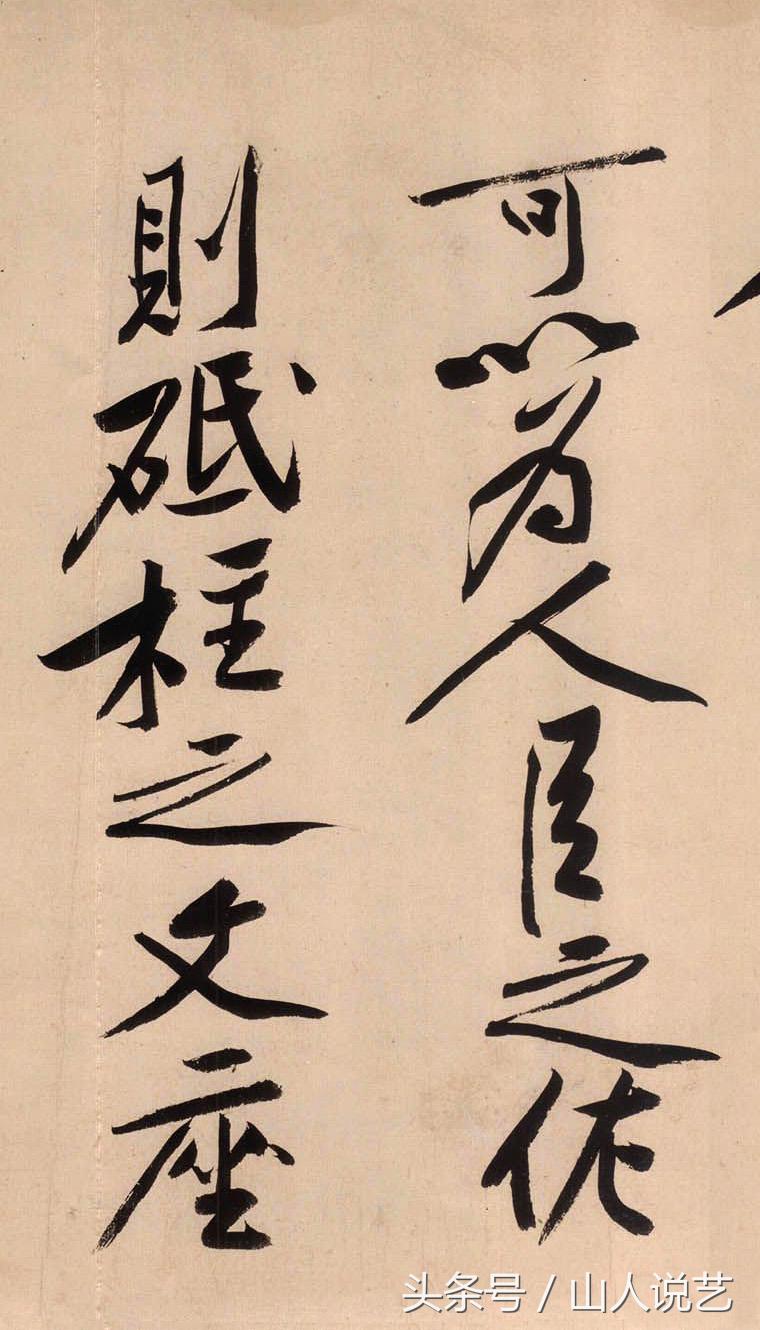 可以為人臣之佐
則砥柱之文座
头条号 / 山人说艺